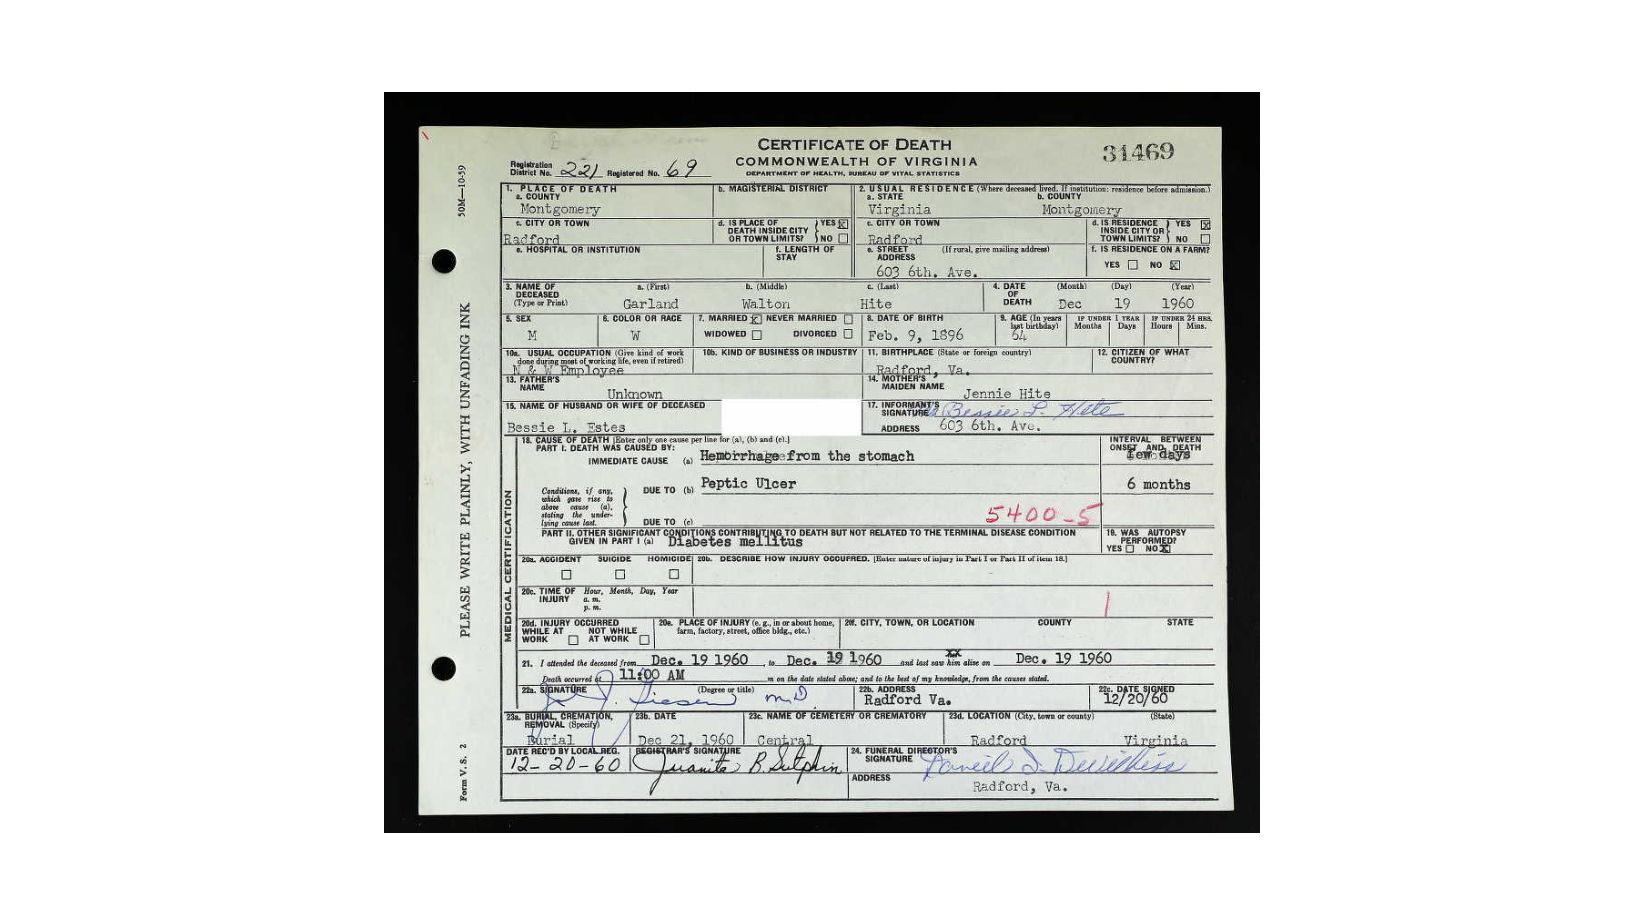 CERTIFICATE OF DEATH
31469
COMMONWEALTH OF VIRGINIA
DEPARTMENT OF HEALTH, BUREAU OF VITAL STATISTICS
Registration District No. 221 Registered No. 69
50M—10-59
PLEASE WRITE PLAINLY, WITH UNFADING INK
Form V. S. 2
1. PLACE OF DEATH
a. COUNTY
Montgomery
b. MAGISTERIAL DISTRICT
2. USUAL RESIDENCE (Where deceased lived. If institution: residence before admission.)
a. STATE b. COUNTY
Virginia Montgomery
c. CITY OR TOWN
Radford
d. IS PLACE OF DEATH INSIDE CITY OR TOWN LIMITS? YES X NO
c. CITY OR TOWN
Radford
d. IS RESIDENCE INSIDE CITY OR TOWN LIMITS? YES X NO
e. HOSPITAL OR INSTITUTION
f. LENGTH OF STAY
e. STREET ADDRESS (If rural, give mailing address)
603 6th. Ave.
f. IS RESIDENCE ON A FARM?
YES NO X
3. NAME OF DECEASED (Type or Print)
a. (First) b. (Middle) c. (Last)
Garland Walton Hite
4. DATE OF DEATH (Month) (Day) (Year)
Dec 19 1960
5. SEX
M
6. COLOR OR RACE
W
7. MARRIED X NEVER MARRIED
WIDOWED DIVORCED
8. DATE OF BIRTH
Feb. 9, 1896
9. AGE (In years last birthday)
64
IF UNDER 1 YEAR
Months Days
IF UNDER 24 HRS.
Hours Mins.
10a. USUAL OCCUPATION (Give kind of work done during most of working life, even if retired)
N & W Employee
10b. KIND OF BUSINESS OR INDUSTRY
11. BIRTHPLACE (State or foreign country)
Radford, Va.
12. CITIZEN OF WHAT COUNTRY?
13. FATHER'S NAME
Unknown
14. MOTHER'S MAIDEN NAME
Jennie Hite
15. NAME OF HUSBAND OR WIFE OF DECEASED
Bessie L. Estes
17. INFORMANT'S SIGNATURE Bessie L. Hite
ADDRESS 603 6th. Ave.
MEDICAL CERTIFICATION
18. CAUSE OF DEATH [Enter only one cause per line for (a), (b) and (c).]
PART I. DEATH WAS CAUSED BY:
IMMEDIATE CAUSE (a) Hemorrhage from the stomach
INTERVAL BETWEEN ONSET AND DEATH
few days
Conditions, if any, which gave rise to above cause (a), stating the underlying cause last.
DUE TO (b) Peptic Ulcer
6 months
DUE TO (c)
5400-5
PART II. OTHER SIGNIFICANT CONDITIONS CONTRIBUTING TO DEATH BUT NOT RELATED TO THE TERMINAL DISEASE CONDITION GIVEN IN PART I (a) Diabetes mellitus
19. WAS AUTOPSY PERFORMED?
YES NO X
20a. ACCIDENT SUICIDE HOMICIDE
20b. DESCRIBE HOW INJURY OCCURRED. [Enter nature of injury in Part I or Part II of item 18.]
20c. TIME OF INJURY Hour, Month, Day, Year
a. m.
p. m.
20d. INJURY OCCURRED
WHILE AT WORK NOT WHILE AT WORK
20e. PLACE OF INJURY (e. g., in or about home, farm, factory, street, office bldg., etc.)
20f. CITY, TOWN, OR LOCATION COUNTY STATE
21. I attended the deceased from Dec. 19 1960, to Dec. 19 1960 and last saw him alive on Dec. 19 1960
Death occurred at 11:00 AM m on the date stated above; and to the best of my knowledge, from the causes stated.
22a. SIGNATURE (Degree or title)
M.D
22b. ADDRESS
Radford Va.
22c. DATE SIGNED
12/20/60
23a. BURIAL, CREMATION, REMOVAL (Specify)
Burial
23b. DATE
Dec 21, 1960
23c. NAME OF CEMETERY OR CREMATORY
Central
23d. LOCATION (City, town or county) (State)
Radford Virginia
DATE REC'D BY LOCAL REG.
12-20-60
REGISTRAR'S SIGNATURE
Juanita B. Sutphin
24. FUNERAL DIRECTOR'S SIGNATURE
ADDRESS
Radford, Va.